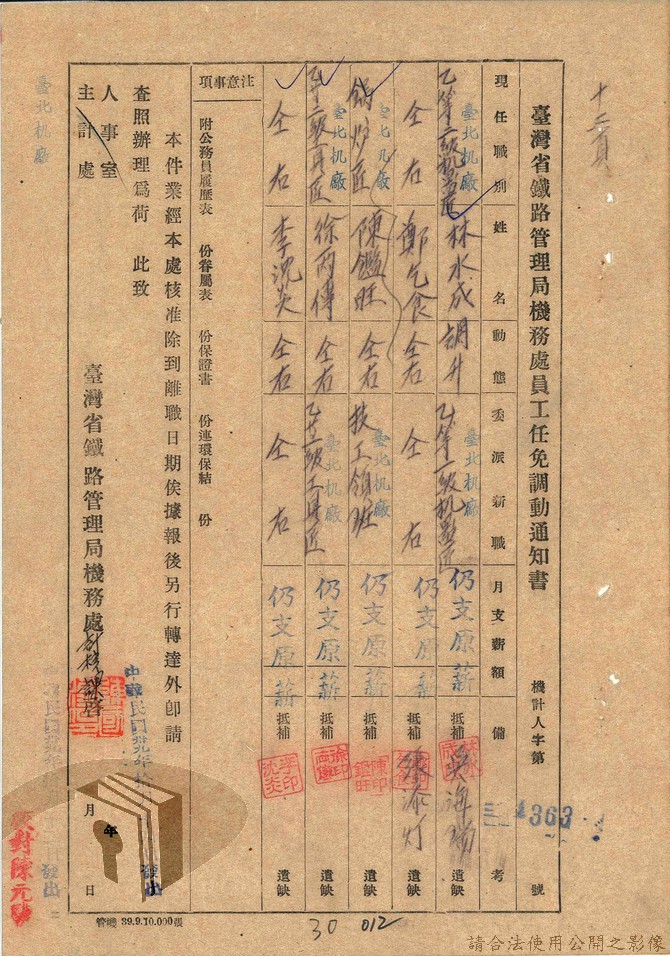 十二頁
臺灣省鐵路管理局機務處員工任免調動通知書
機計人字第 4363 號
現任職別 姓名 動態 委派新職 月支薪額 備考
臺北机廠 乙等二級机器匠 林水成 調升 臺北机廠 乙等一級机器匠 仍支原薪 抵補 遺缺
仝右 鄭乞食 仝右 仝右 仍支原薪 抵補 遺缺
臺北机廠 鍋炉匠 陳鑑旺 仝右 臺北机廠 技工領班 仍支原薪 抵補 遺缺
臺北机廠 徐丙傳 仝右 臺北机廠 仍支原薪 抵補 遺缺
仝右 李沈炎 仝右 仝右 仍支原薪 抵補 遺缺
注意事項 附公務員履歷表 份眷屬表 份保證書 份連環保結 份
本件業經本處核准除到離職日期俟據報後另行轉達外卽請
查照辦理爲荷 此致
人事室
主計處
臺灣省鐵路管理局機務處 啓
年 月 日
發出
發出
臺北机廠
校對陳元
管機 39.9.10.000張
30 012
請合法使用公開之影像